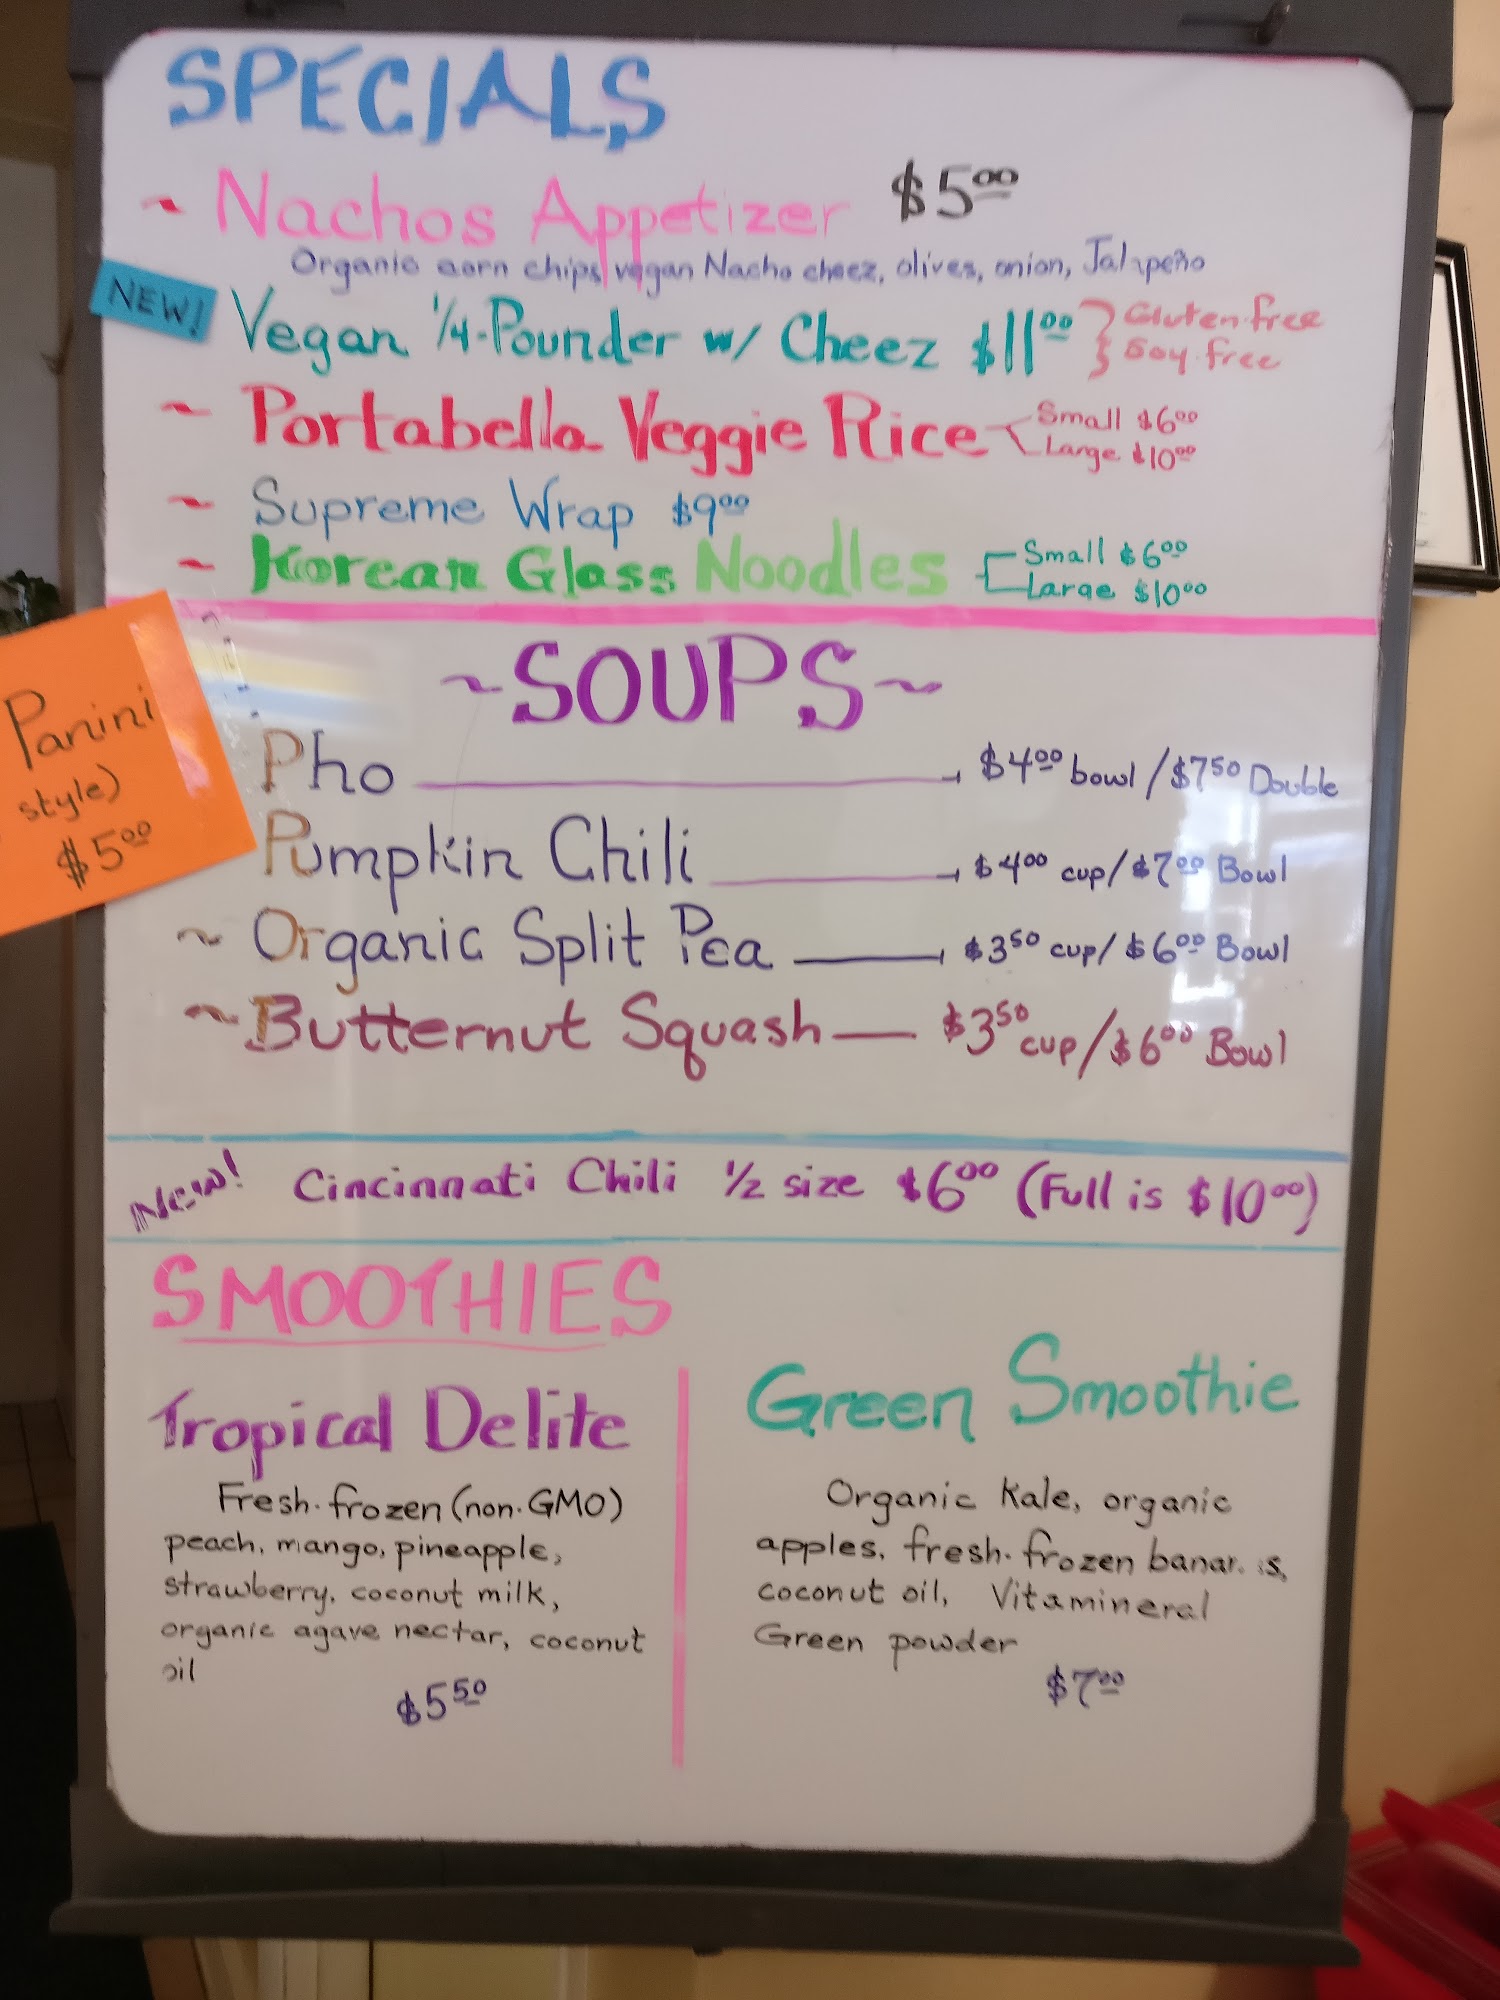 SPECIALS
~ Nachos Appetizer $5.00
Organic corn chips, vegan Nacho cheez, olives, onion, Jalapeño
NEW! Vegan 1/4-Pounder w/ Cheez $11.00 } Gluten-free
Soy-free
~ Portabella Veggie Rice Small $6.00
Large $10.00
~ Supreme Wrap $9.00
~ Korean Glass Noodles Small $6.00
Large $10.00
Panini
style)
$5.00
~SOUPS~
Pho $4.00 bowl/$7.50 Double
Pumpkin Chili $4.00 cup/$7.00 Bowl
~ Organic Split Pea $3.50 cup/$6.00 Bowl
~ Butternut Squash $3.50 cup/$6.00 Bowl
New! Cincinnati Chili 1/2 size $6.00 (Full is $10.00)
SMOOTHIES
Tropical Delite
Fresh-frozen (non-GMO)
peach, mango, pineapple,
strawberry, coconut milk,
organic agave nectar, coconut
oil
$5.50
Green Smoothie
Organic Kale, organic
apples, fresh-frozen bananas,
coconut oil, Vitamineral
Green powder
$7.00